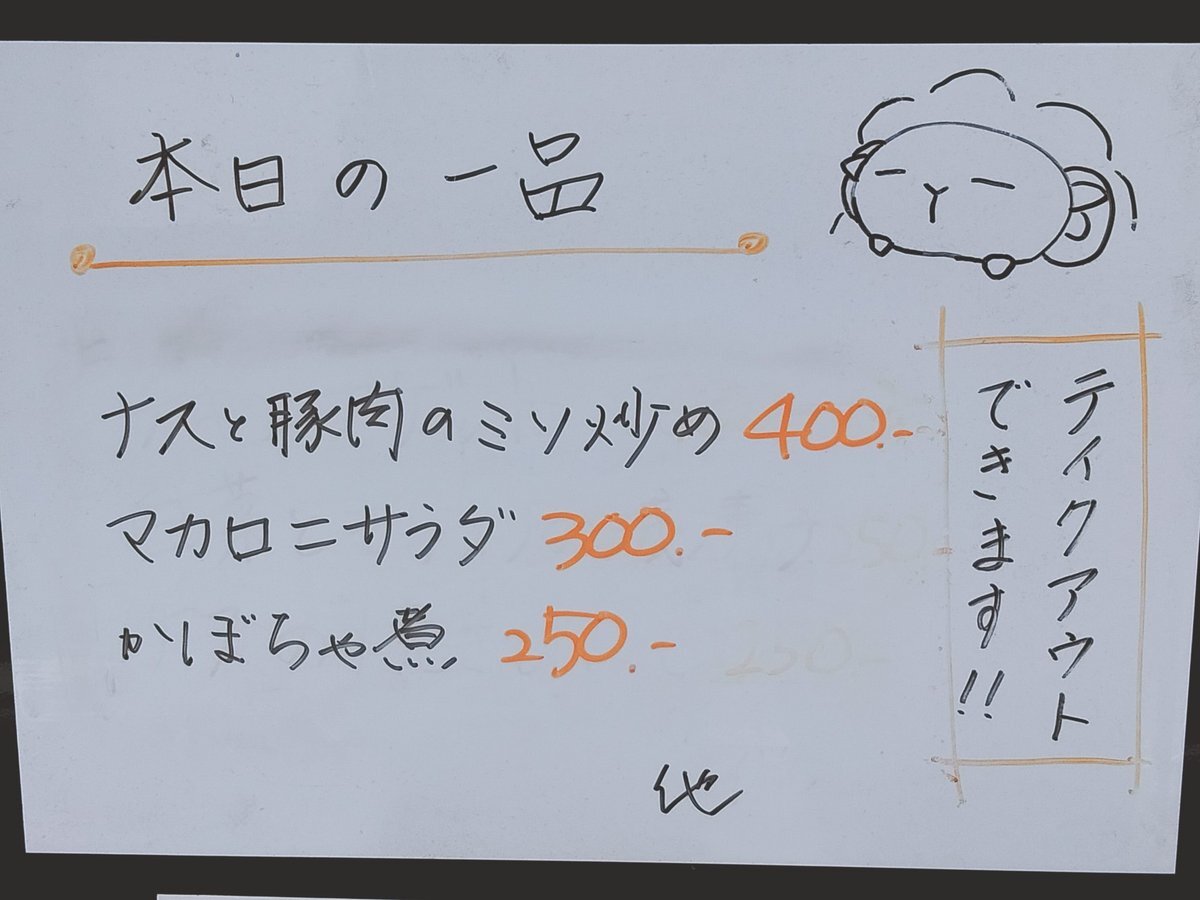 本日の一品
ナスと豚肉のミソ炒め 400.-
マカロニサラダ 300.-
かぼちゃ煮 250.-
他
ティクアウト
できます!!